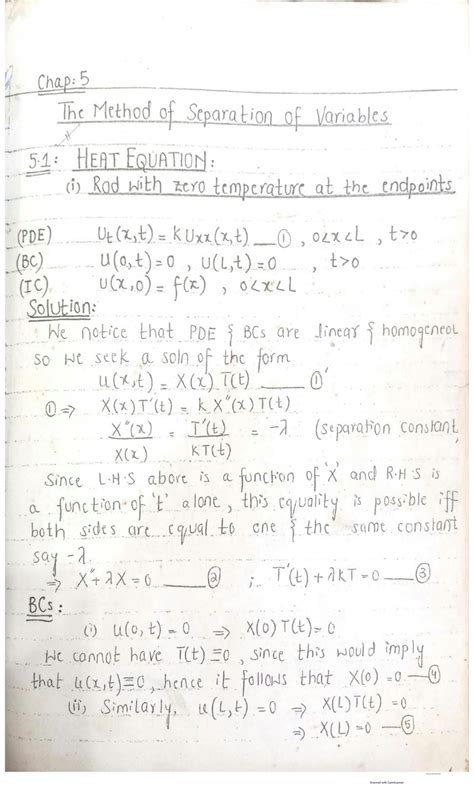 Chap: 5
The Method of Separation of Variables
5.1: HEAT EQUATION:
(i) Rod with zero temperature at the endpoints
(PDE) Ut(x,t) = kUxx(x,t) — ① , 0<x<L , t>0
(BC) U(0,t)=0 , U(L,t)=0 , t>0
(IC) U(x,0) = f(x) , 0<x<L
Solution:
We notice that PDE & BCs are linear & homogeneou
so we seek a soln of the form
u(x,t) = X(x) T(t) — ①'
① ⇒ X(x)T'(t) = k X''(x)T(t)
X''(x)/X(x) = T'(t)/KT(t) = -λ (separation constant)
Since L.H.S above is a function of 'X' and R.H.S is
a function of 't' alone, this equality is possible iff
both sides are equal to one & the same constant
say -λ.
⇒ X''+λX=0 — ② ; T'(t)+λKT=0 — ③
BCs:
(i) u(0,t) = 0 ⇒ X(0)T(t)=0
We cannot have T(t)≡0, since this would imply
that u(x,t)≡0, hence it follows that X(0)=0 — ④
(ii) Similarly, u(L,t)=0 ⇒ X(L)T(t)=0
⇒ X(L)=0 — ⑤
Scanned with CamScanner